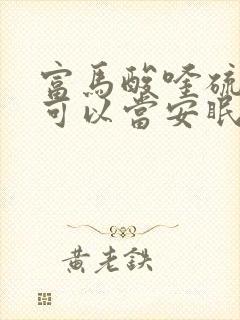 富馬酸喹硫
可以當安眠
黃老鉄